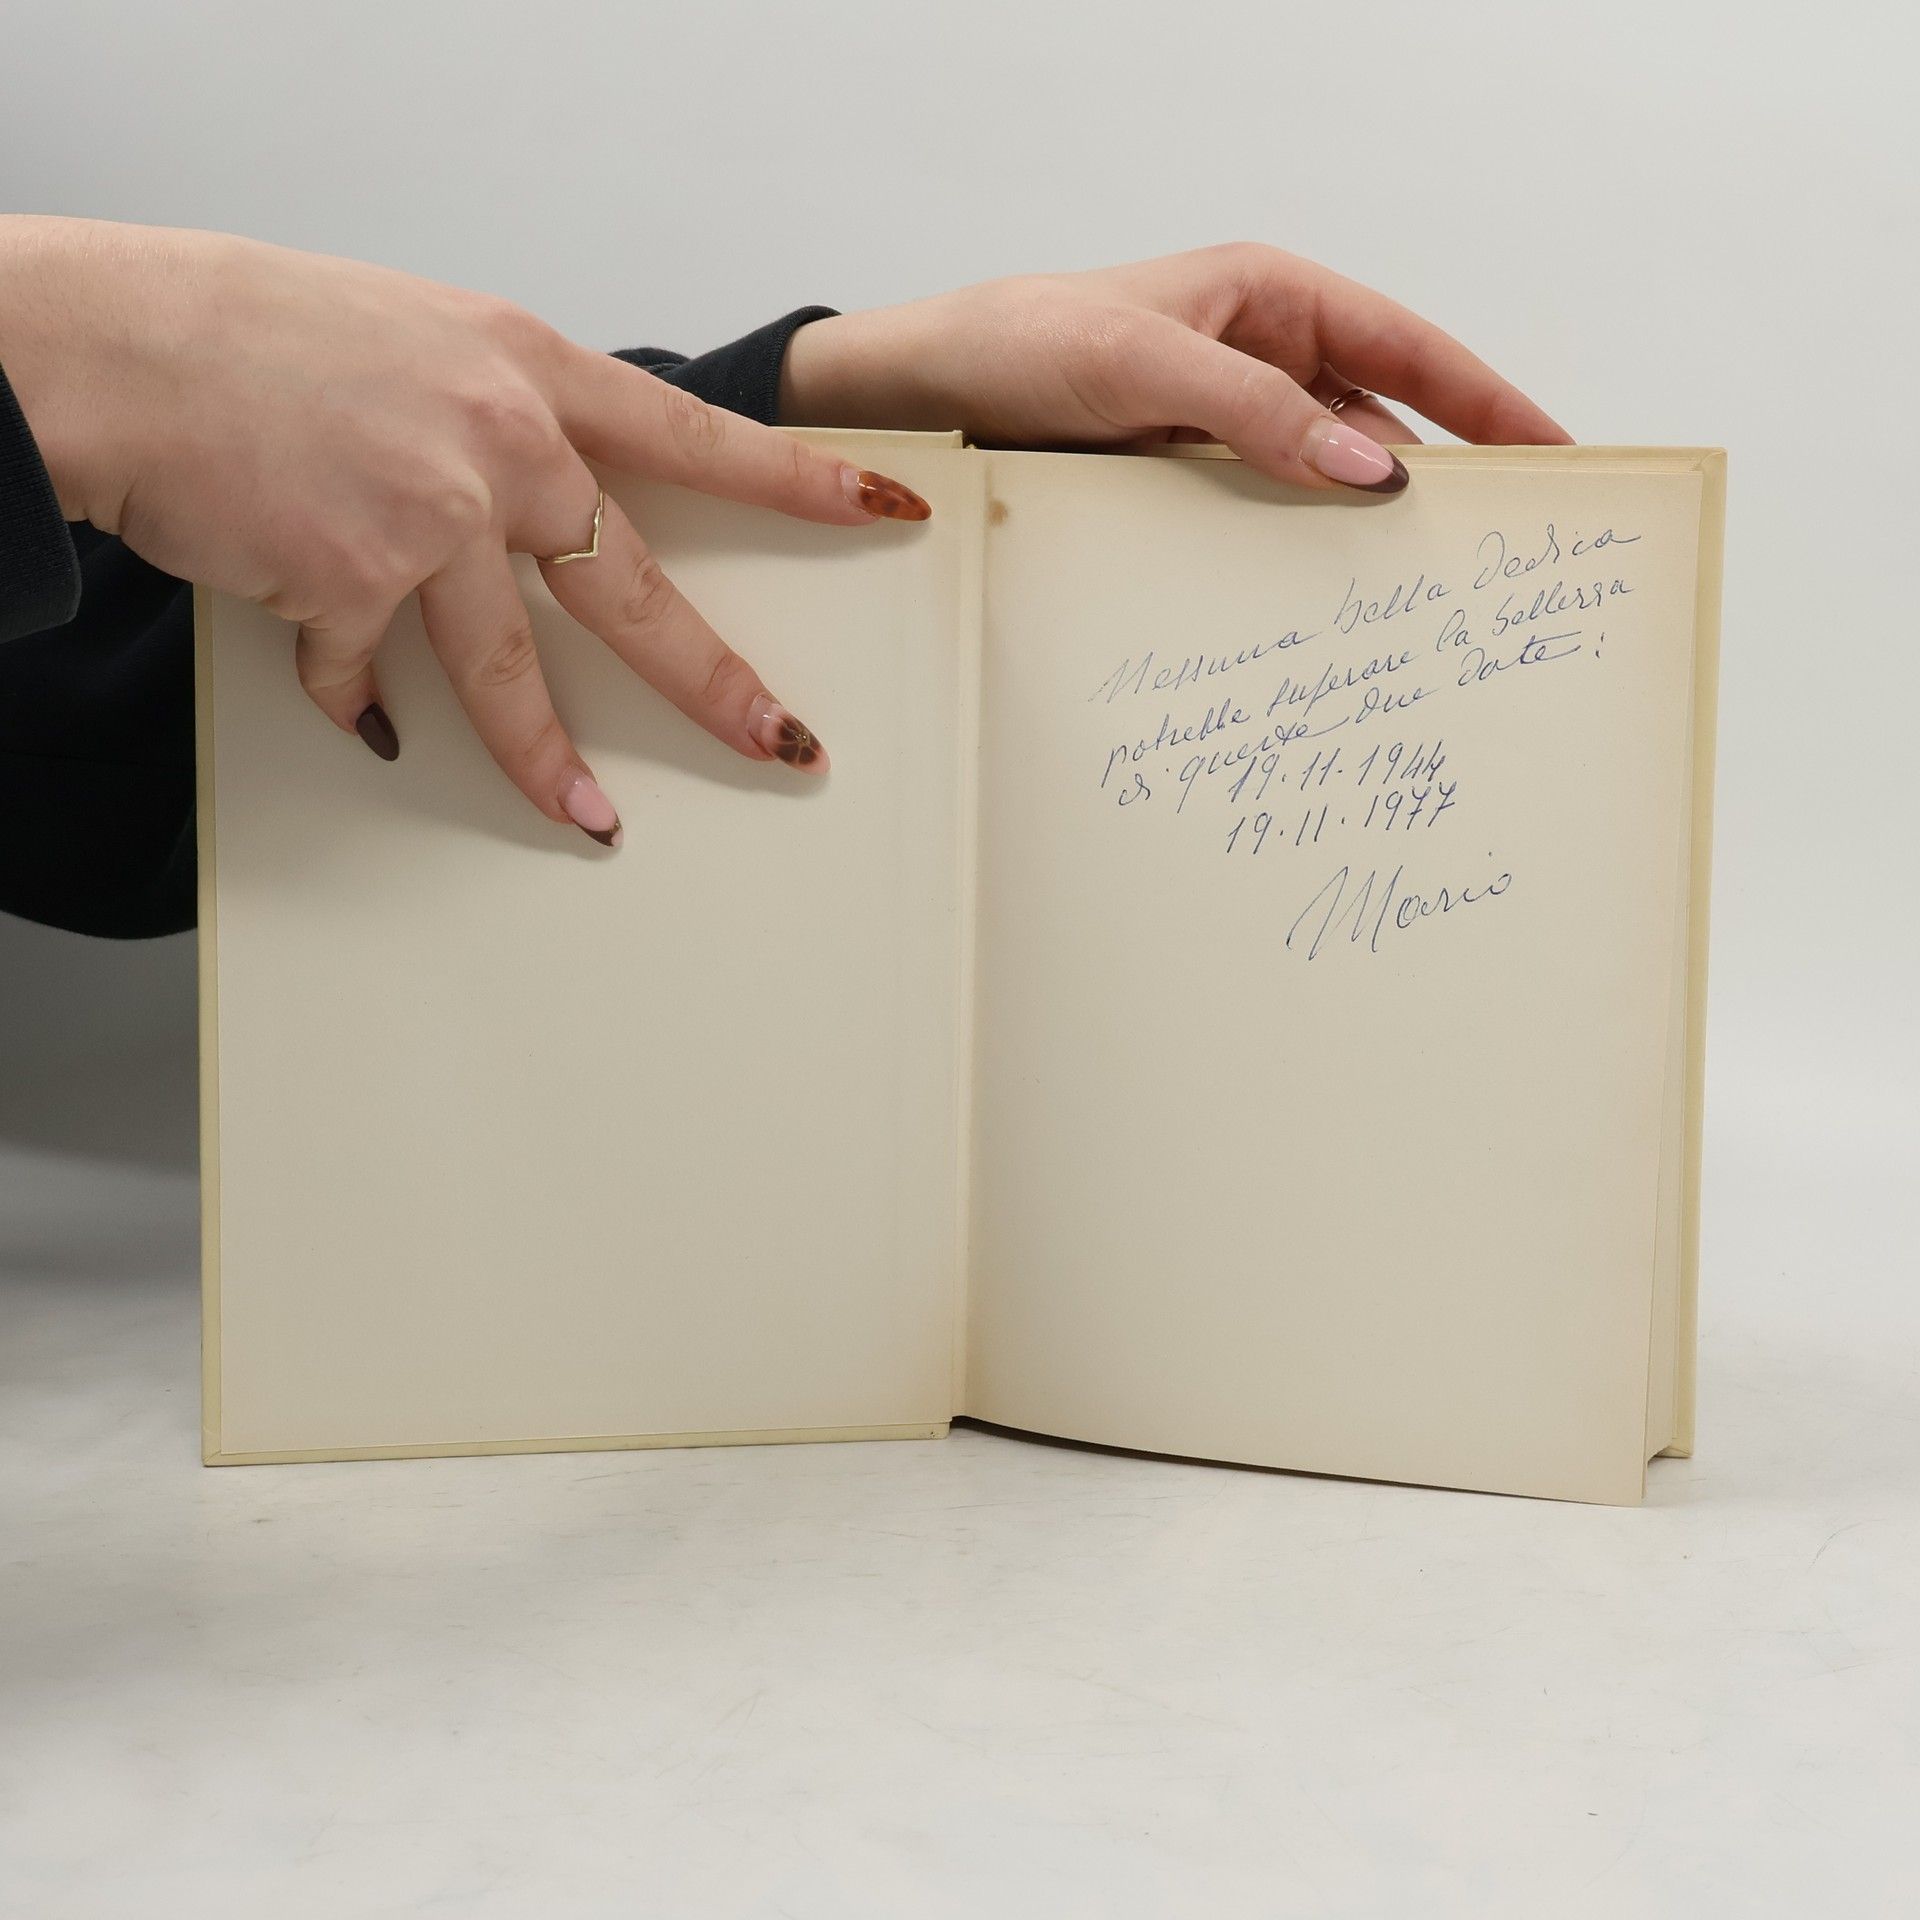 Nessuna bella dedica
potrebbe superare la bellezza
di queste due date:
19.11.1944
19.11.1977
Mario